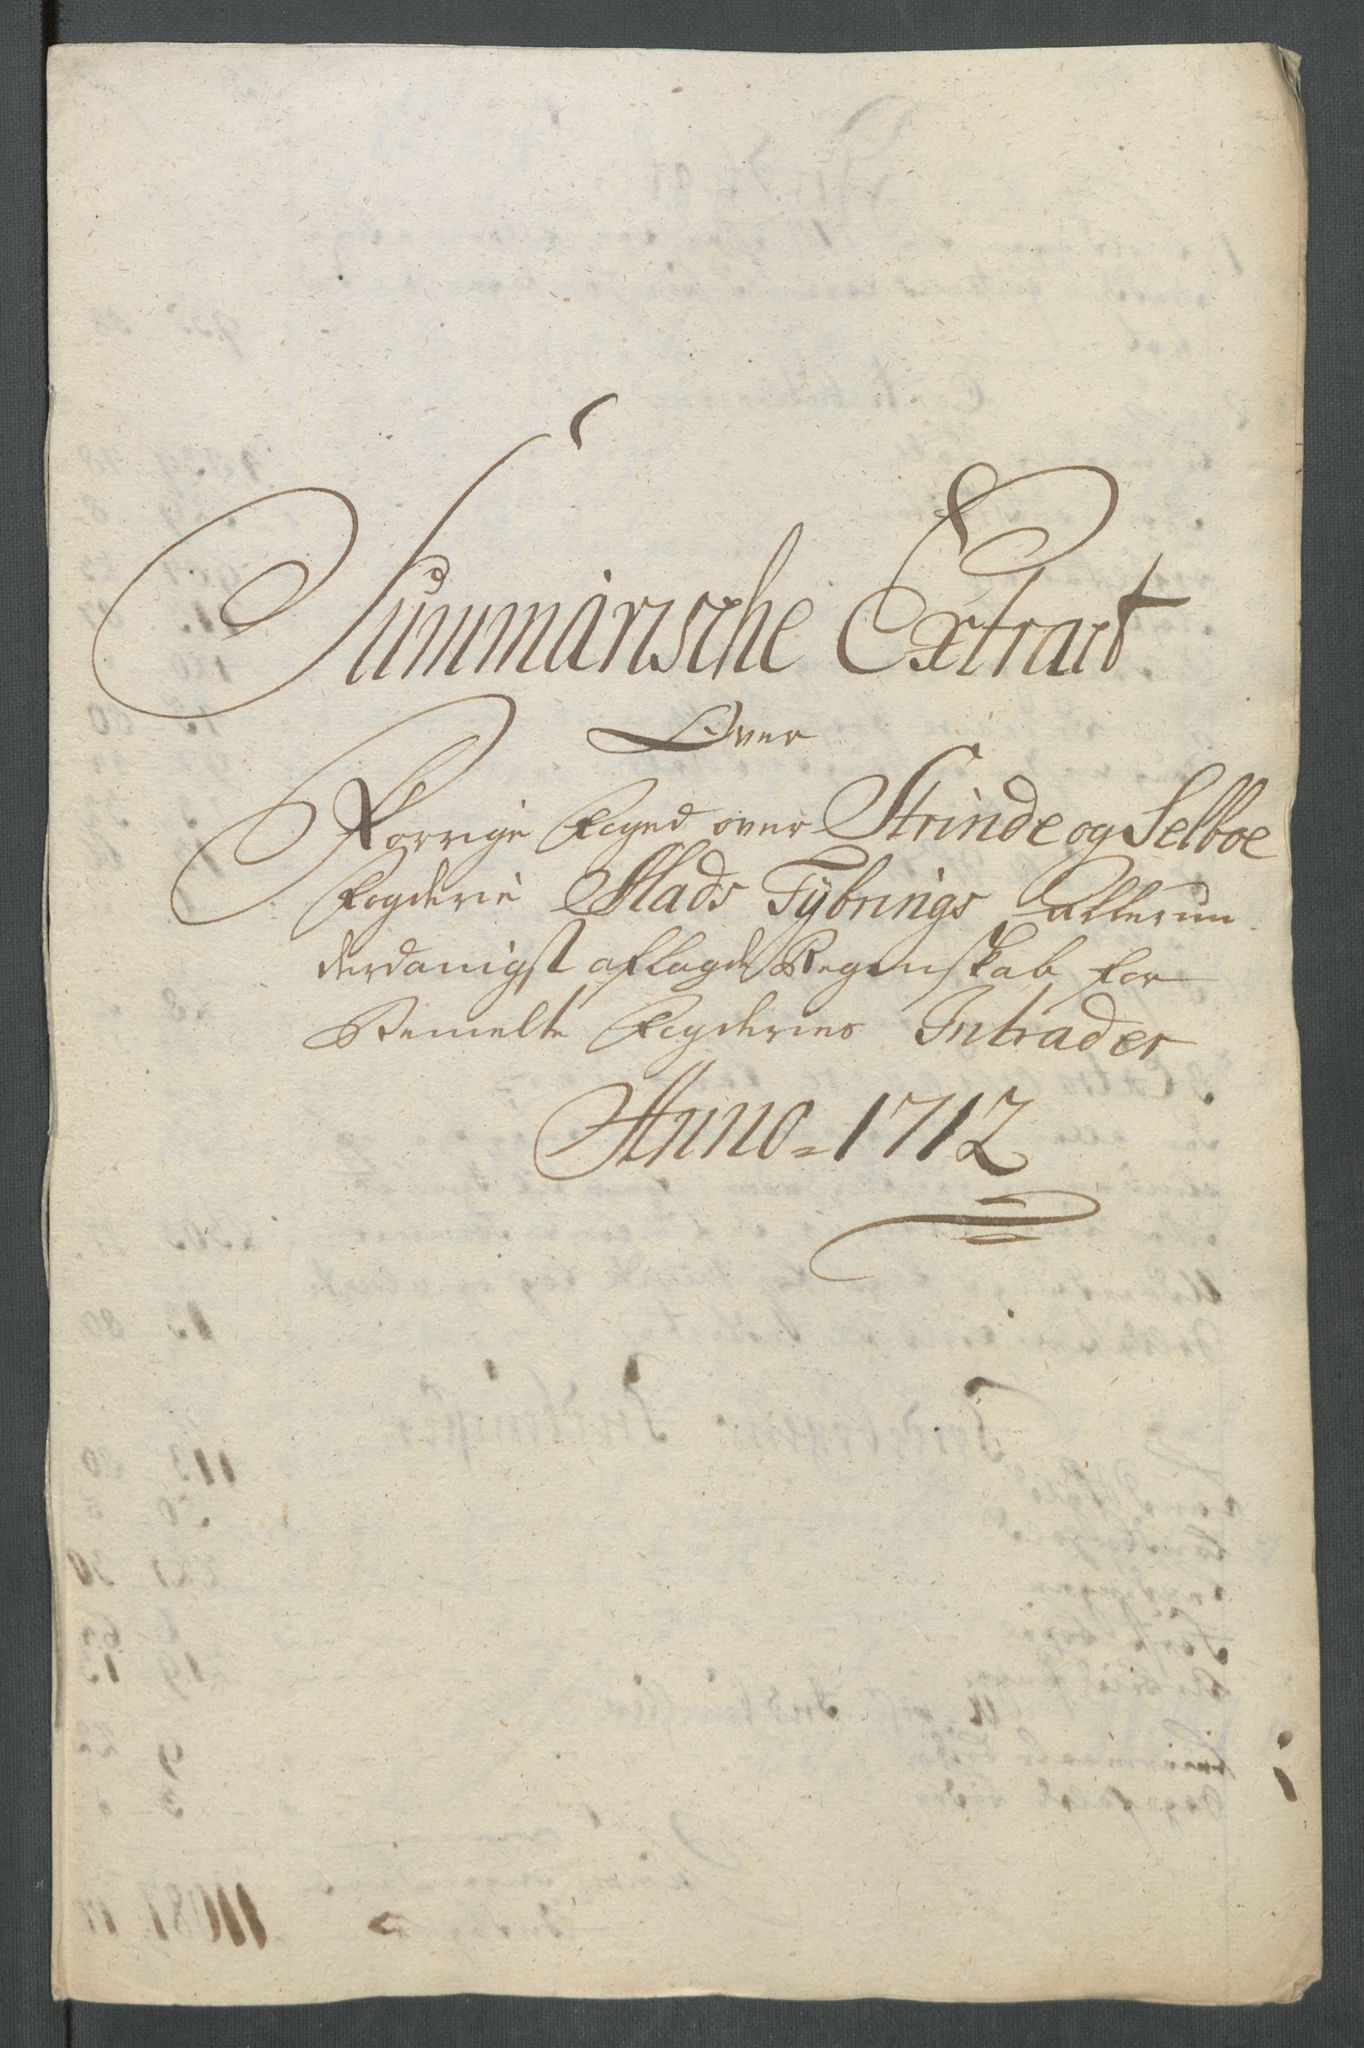 Summarische Extract
Over
Forrige Foged over Strinde og Selboe
Fogderie Mads Tybrings Allerun
derdanigst aflagde Regenskab for
Bemelte Fogderies Intrader
Anno 1712